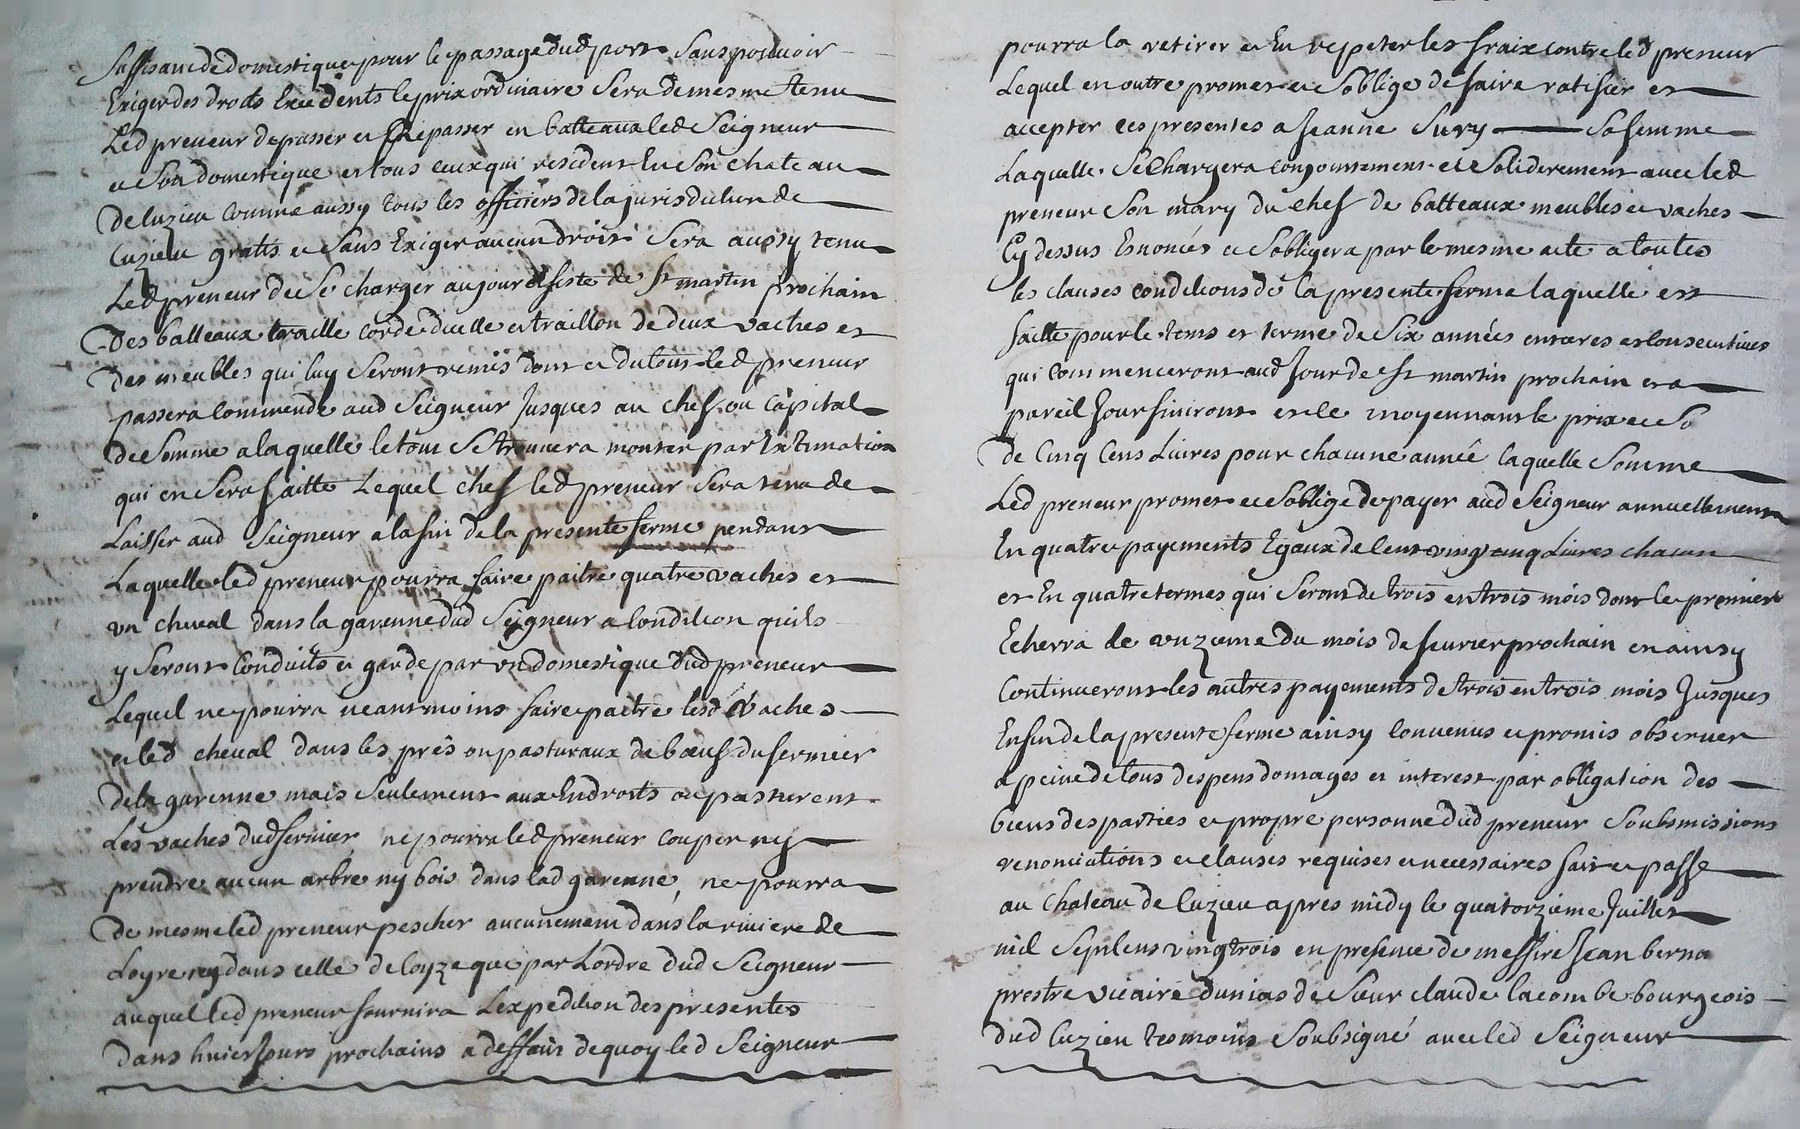 Suffisance de domestique pour le passage dud port Sans pouvoir
Exiger des droits Excedents le prix ordinaire Sera de mesme tenu
Led preneur de passer et Repasser en batteaux led Seigneur
et Son domestique et tous ceux qui resident En Son chateau
de Cuzieu comme aussy tous les officiers de la jurisdiction de
Cuzieu gratis et Sans Exiger aucun droit Sera aussy tenu
Led preneur de Se charger au jour et feste de St martin prochain
Des batteaux traille corde dicelle et traillon de deux vaches et
des meubles qui luy Seront remis dont et du tout led preneur
passera commende aud Seigneur Jusques au chef ou Capital
de Somme a laquelle le tout Se trouvera monter par Extimation
qui en Sera faitte Lequel chef led preneur Sera tenu de
Laisser aud Seigneur a la fin de la presente ferme pendant
Laquelle led preneur pourra faire paitre quatre vaches et
un cheval dans la garenne dud Seigneur a Condition quils
y Seront Conduits et garde par un domestique dud preneur
Lequel ne pourra neantmoins faire paitre lesd Vaches
et led cheval dans les prés ou pasturaux de bœuf du fermier
de la garenne mais Seulement aux Endroits ou pasturent
Les vaches dud fermier ne pourra led preneur couper ny
prendre aucun arbre ny bois dans lad garenne, ne pourra
de mesme led preneur pescher aucunement dans la riviere de
Loyre ny dans celle de Loyze que par Lordre dud Seigneur
auquel led preneur fournira Lexpedition des presentes
dans huict Jours prochains a deffaut de quoy led Seigneur
pourra la retirer et En repeter les fraix contre led preneur
Lequel en outre promet et Soblige de faire ratifier et
accepter ces presentes a Jeanne Sury Sa femme
Laquelle Se Chargera conjointement et Soliderement avec led
preneur Son mary du chef de batteaux meubles et vaches
Cy dessus Enoncés et Sobligera par le mesme acte a toutes
les clauses conditions de la presente ferme laquelle est
faitte pour le tems et terme de Six années entieres et consecutives
qui Commenceront aud Jour de St martin prochain et a
pareil Jour finiront et le moyennant le prix et So
de Cinq Cens Livres pour chacune année laquelle Somme
Led preneur promet et Soblige de payer aud Seigneur annuellement
En quatre payements Egaux de Cent vingt cinq Livres chacun
et En quatre termes qui Seront de trois en trois mois dont le premier
Echerra le onzieme du mois de fevrier prochain et ainsy
Continueront les autres payements de trois en trois mois Jusques
En fin de la presente ferme ainsy Convenus et promis observer
a peine de tous despens domages et interest par obligation des
biens des parties et propre personne dud preneur Soubsmissions
renonciations et clauses requises et necessaires fait et passe
au Chateau de Cuzieu apres midy le quatorzieme Juillet
mil Sept Cens vingt trois en presence de messire Jean berna
prestre vicaire dunias de Sieur claude lacombe bourgeois
dud Cuzieu tesmoins Soubsigné avec led Seigneur